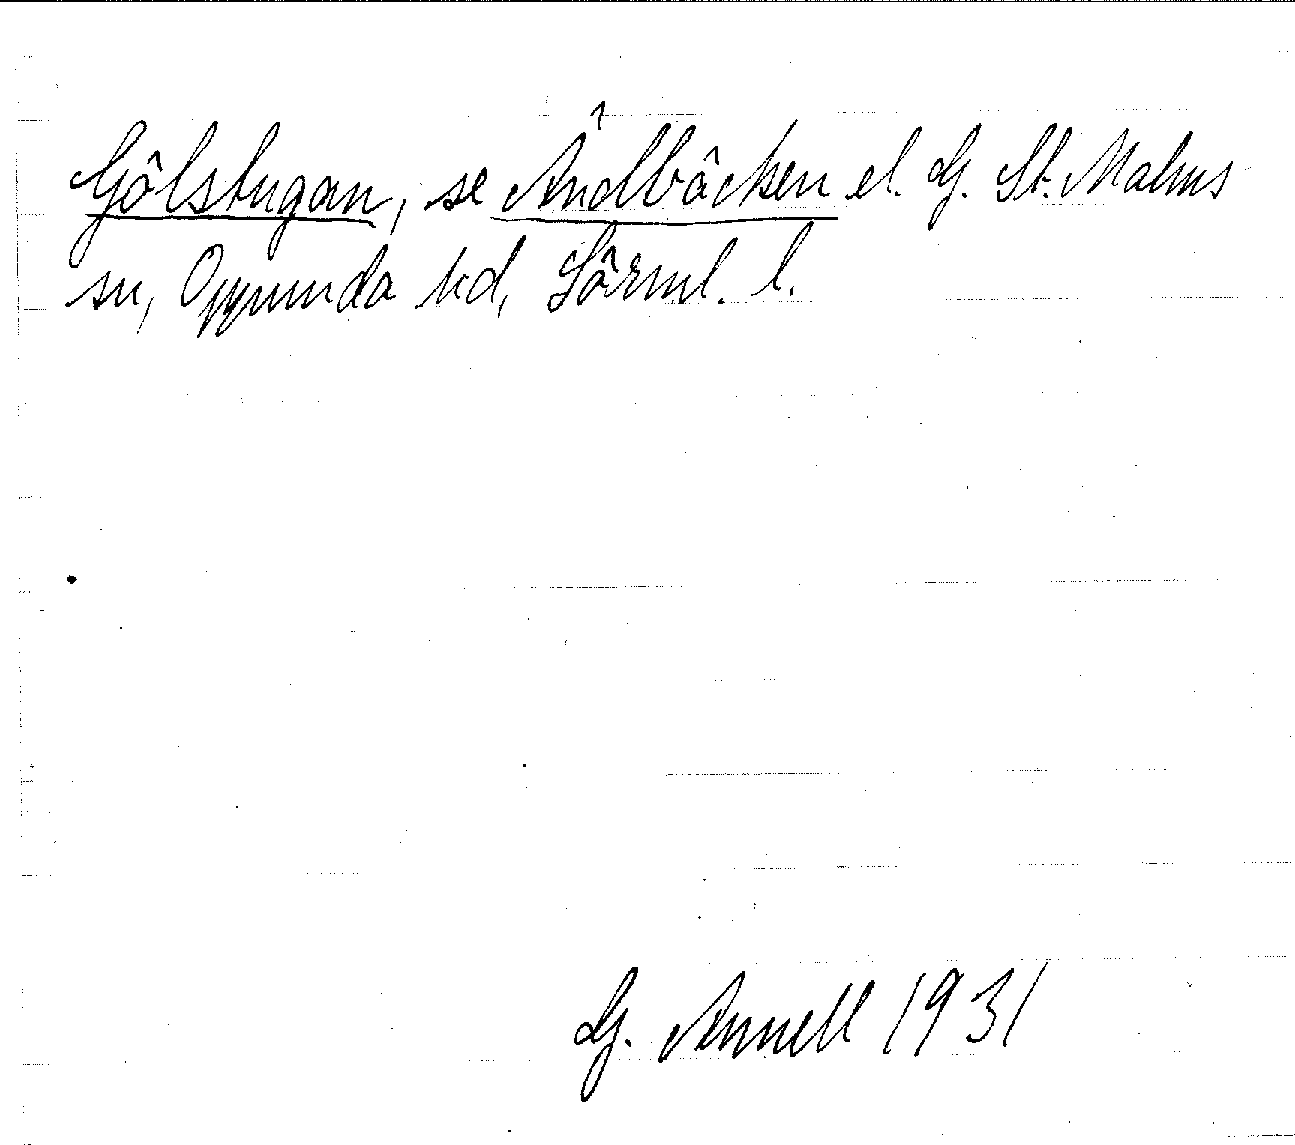 Gölstugan, se Ändbäcken el. G. St. Malms
sn, Oppunda hd, Sörml. l.
G. Annell 1931